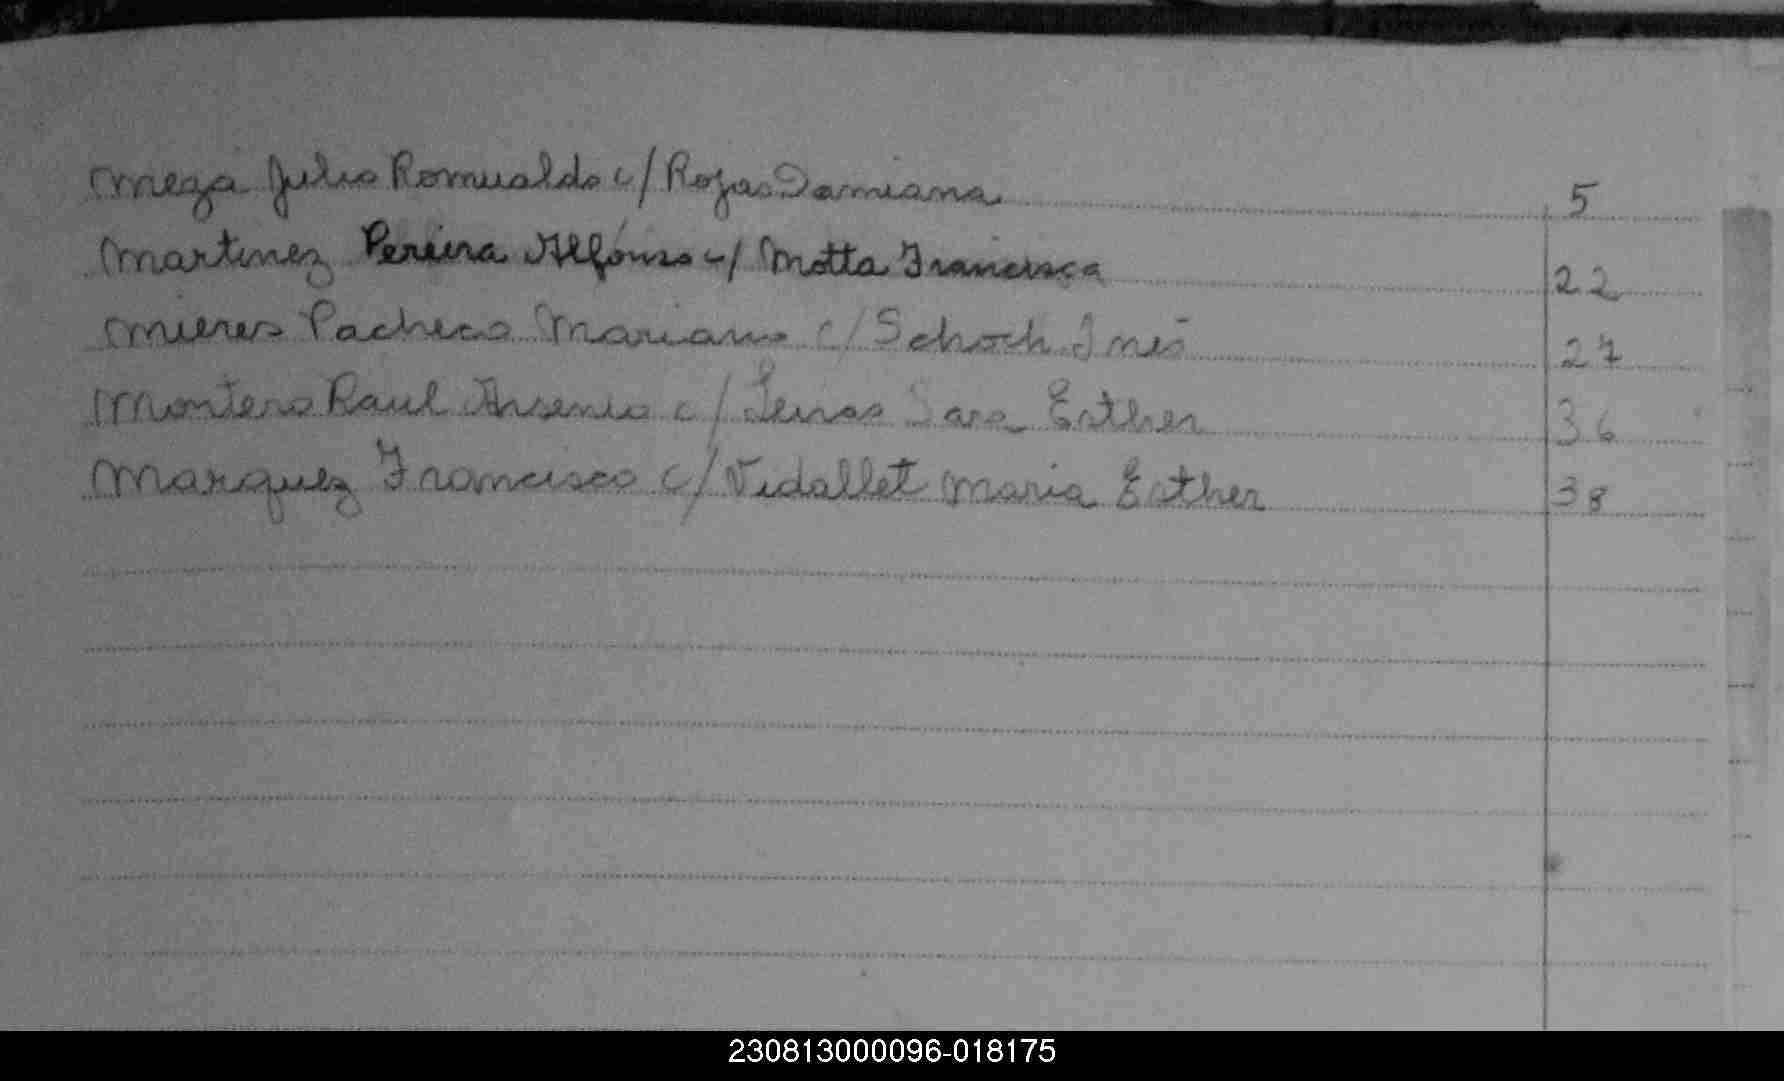 Meza Julio Romualdo c/ Rojas Damiana 5
Martinez Pereira Alfonso c/ Motta Francisca 22
Mieres Pacheco Mariano c/ Schoch Inés 27
Montero Raul Arsenio c/ Sara Esther 36
Marquez Francisco c/ Vidallet Maria Esther 38
230813000096-018175